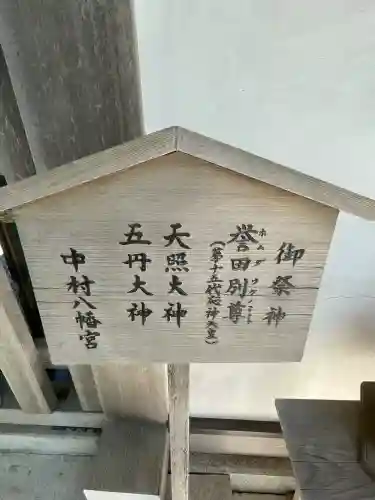 御祭神
誉田別尊
ホムダワケ
(第十五代応神天皇)
天照大神
五丹大神
中村八幡宮